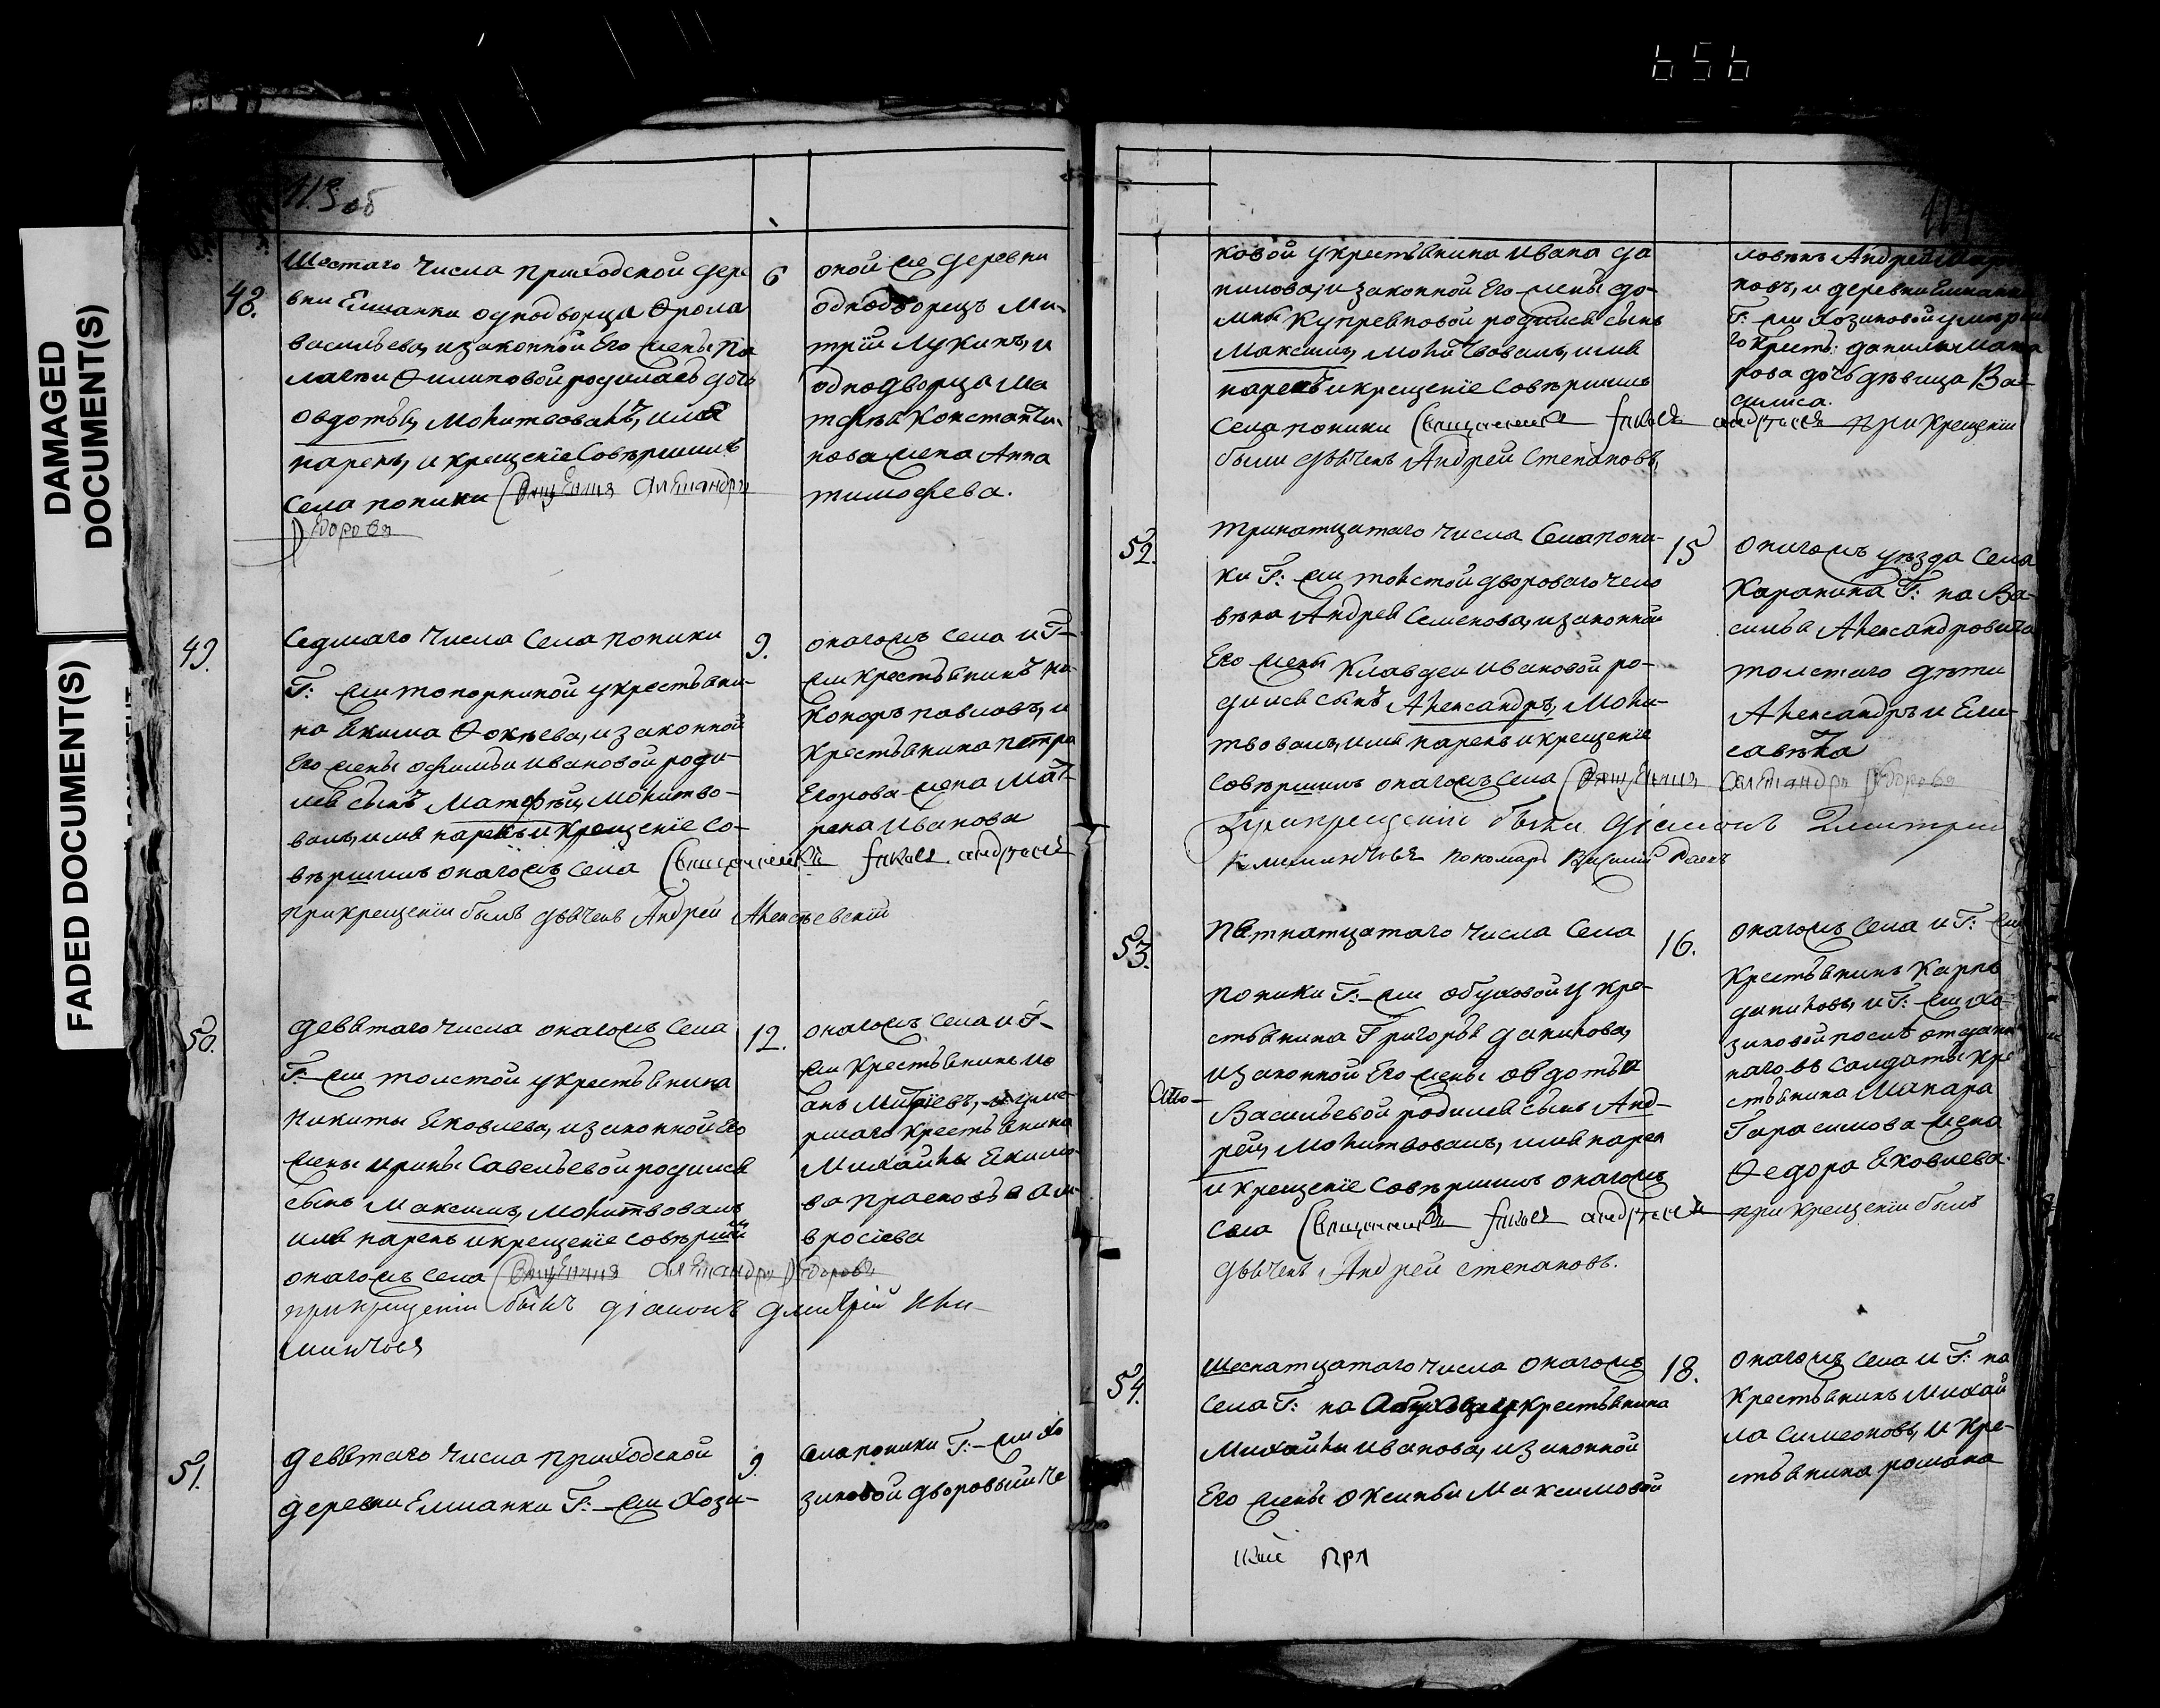 DAMAGED
DOCUMENT(S)
FADED DOCUMENT(S)
656
113 об
48.
Шестаго числа приходской дере
вни Ешанки однодворца Фрола
Васильева, изаконной Его жены Па
лагѣи Филиповой родилась дочь
Овдотья, молитвовалъ, имя
нарекъ, и крещенїе совѣршилъ
села поники Священникъ Алеѯандръ
Ѳедоровъ
6
оной же деревни
однодворецъ Ми
трїй Лукинъ, и
однодворца Ма
тфѣя Константи
нова жена Анна
тимофеева.
49.
Седмаго числа села поники
Г: жи топорниной укрестьяни
на Якима Фокѣева, изаконной
Его жены офимьи ивановой роди
лся сынъ Матфѣй, молитво
валъ, имя нарекъ и крещенїе со
вѣршилъ онагожъ села Священникъ Андреевъ
при крещенїи былъ дьячекъ Андрей Алексѣевский
9.
онагожъ села и Г
жи крестьянинъ ни
коноръ павловъ, и
крестьянина петра
Егорова жена Мат
рена Иванова
50.
девятаго числа онагожъ села
Г: жи толстой укрестьянина
Никиты Яковлева, изаконной Его
жены ирины Савельевой родился
сынъ Максимъ, молитвовалъ
имя нарекъ икрещенїе совѣршилъ
онагожъ села Священникъ Алеѯандръ Ѳедоровъ
при крещенїи былъ дїаконъ дмитрїй Кли
минтовъ
12.
онагожъ села и Г
жи крестьянинъ ив
анъ Митрїевъ, и уме
ршаго крестьянина
Михайлы Якимо
ва прасковья ам
вросїева
51.
девятаго числа приходской
деревни Ешанки Г: жи Хози
9.
села поники Г: жи Хо
зиковой дворовый че
114
ковой укрестьянина ивана да
нилова, изаконной Его жены до
мны Купреяновой родился сынъ
Максимъ, молитвовалъ, имя
нарекъ икрещенїе совѣршилъ
села поники Священникъ Андреевъ при крещенїи
были дьячекъ Андрей Степановъ,
ловѣкъ Андрей
новъ, и деревни Ешанки
Г: жи Хозиковой умерша
го крестъ: данилы Мака
рова дочь дѣвица Ва
силиса.
52.
тринатцатаго числа села пони
ки Г: жи толстой двороваго чело
вѣка Андрея Семенова, изаконной
Его жены Клавдеи ивановой ро
дился сынъ Александръ, моли
твовалъ, имя нарекъ и крещенїе
совѣршилъ онагожъ села Священникъ Алеѯандръ Ѳедоровъ
При крещенїи были дїаконъ Дмитрий
Климинтовъ пономарь Василий
15
онагожъ уѣзда села
Каранина Г: на Ва
силья Александровича
толстаго дѣти
Александръ и Ели
савѣта
53.
пятнатцатаго числа села
поники Г: жи обуховой у кре
стьянина Григорья данилова,
изаконной Его жены овдотьи
Васильевой родился сынъ Анд
рей, молитвовалъ, имя нарекъ
и крещенїе совѣршилъ онагожъ
села Священникъ Андреевъ при крещенїи былъ
дьячекъ Андрей степановъ.
16.
онагожъ села и Г: жи
крестьянинъ Карпъ
даниловъ, и Г: жи Хо
зиковой послѣ отданн
наго въ салдаты кре
стьянина Макара
Гарасимова жена
Федора Яковлева.
54.
Шеснатцатаго числа онагожъ
села Г: на укрестьянина
Михайлы иванова, изаконной
Его жены оксиньи Максимовой
18.
онагожъ села и Г: на
крестьянинъ Михай
ла симеоновъ, и кре
стьянина романа